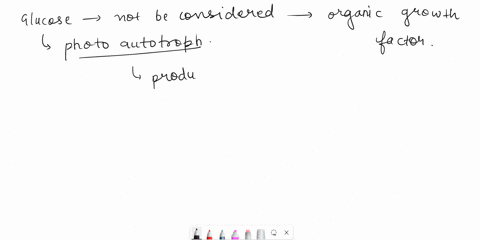 Glucose → not be considered → organic growth factor.
↳ photo autotroph.
↳ produ